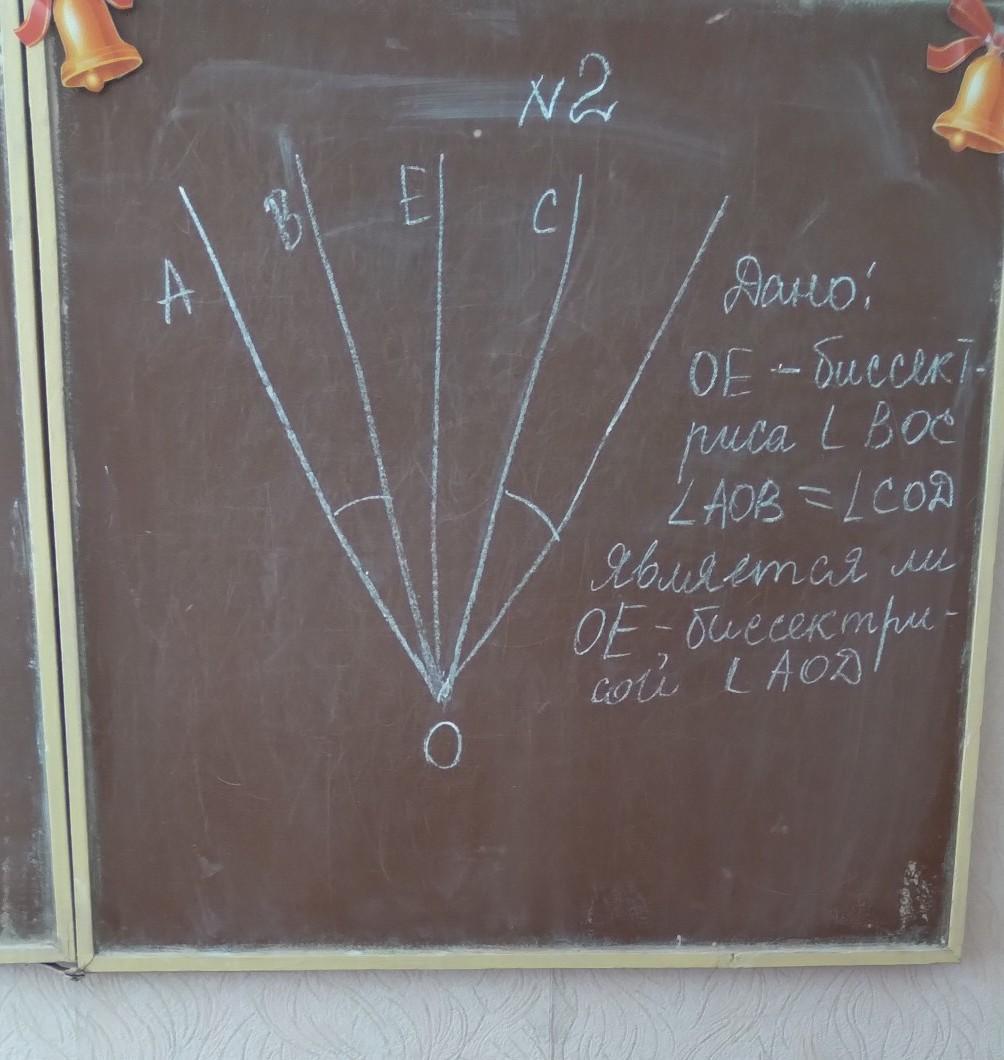 N2
A
B
E
C
O
Дано:
OE - биссект-
риса ∠ BOC
∠AOB = ∠COD
Является ли
OE - биссектри-
сой ∠ AOD